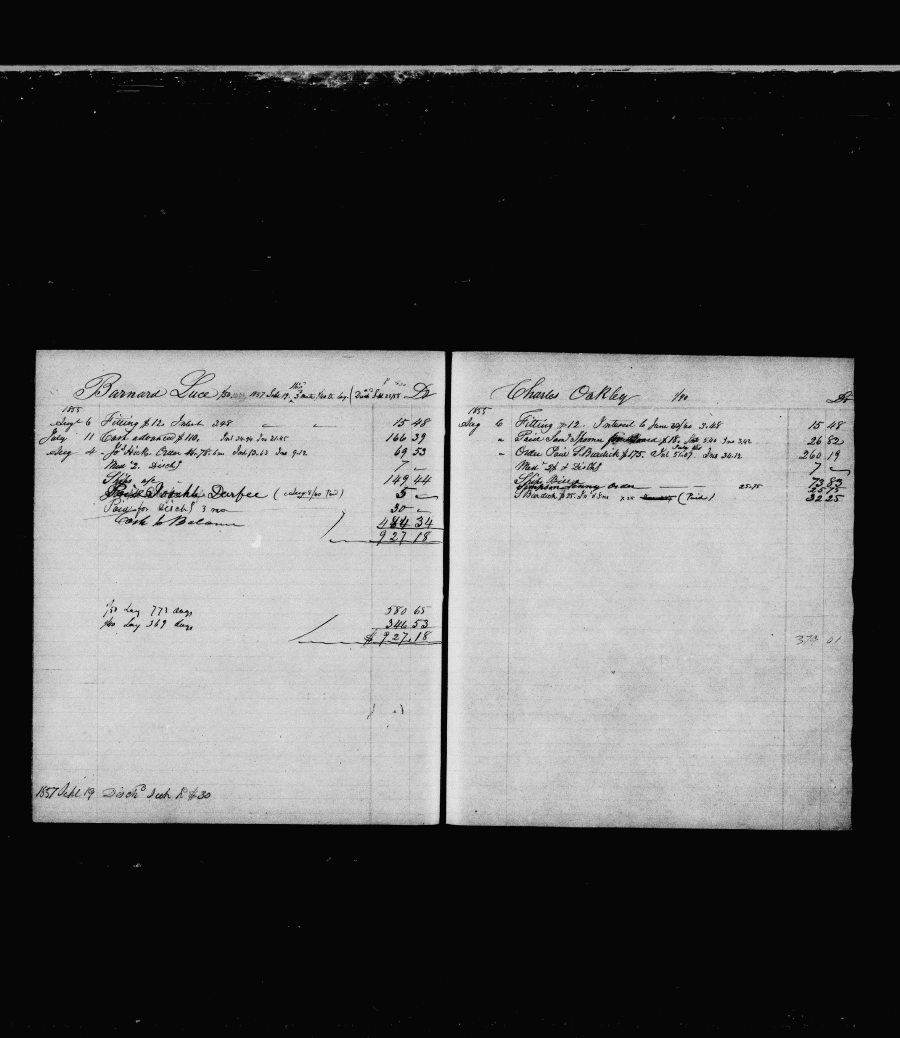 Barnard Luce 1857 Sept 19 Disch Sept 21/58 Dr
1855
Augt 6 Fitting $12. Interest 3.48 15 48
July 11 Cash advanced $110. Int 34.94 Ins 21.45 166 39
Aug 4 Hicks Order 46.78. Int 13.63 Ins 9.12 69 53
Med 2. Disch 5 7 —
Ships a/c 149 44
Paid Durfee 5 —
Paid for Disch 3 mo 30 —
Cash to Balance 484 34
927 18
1/50 Lay 773 days 580 65
Lay 369 days 346 53
$ 927.18
1857 Sept 19 Disch $30
Charles Oakley 1/90 Dr
1855
Aug 6 Fitting $12. Interest to June 3.48 15 48
" Paid Sam Board $18. 5.40 Ins 3.42 26 82
" Order Paid S. Burdick $175. Int 51.07. Ins 34.12 260 19
Med 2 & Disch 5 7 —
Ships Bill 73 83
Simpson Order — — 25.75 25 75
S Burdick $25. (Paid) 32 25
373 01